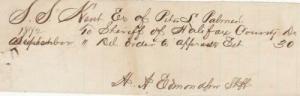 S. S. Kent Ex of Peter S. Palmer
To Sheriff of Halifax County Dr
1872
September " Del. order to appraise Est 30
H. A. Edmondson Shff